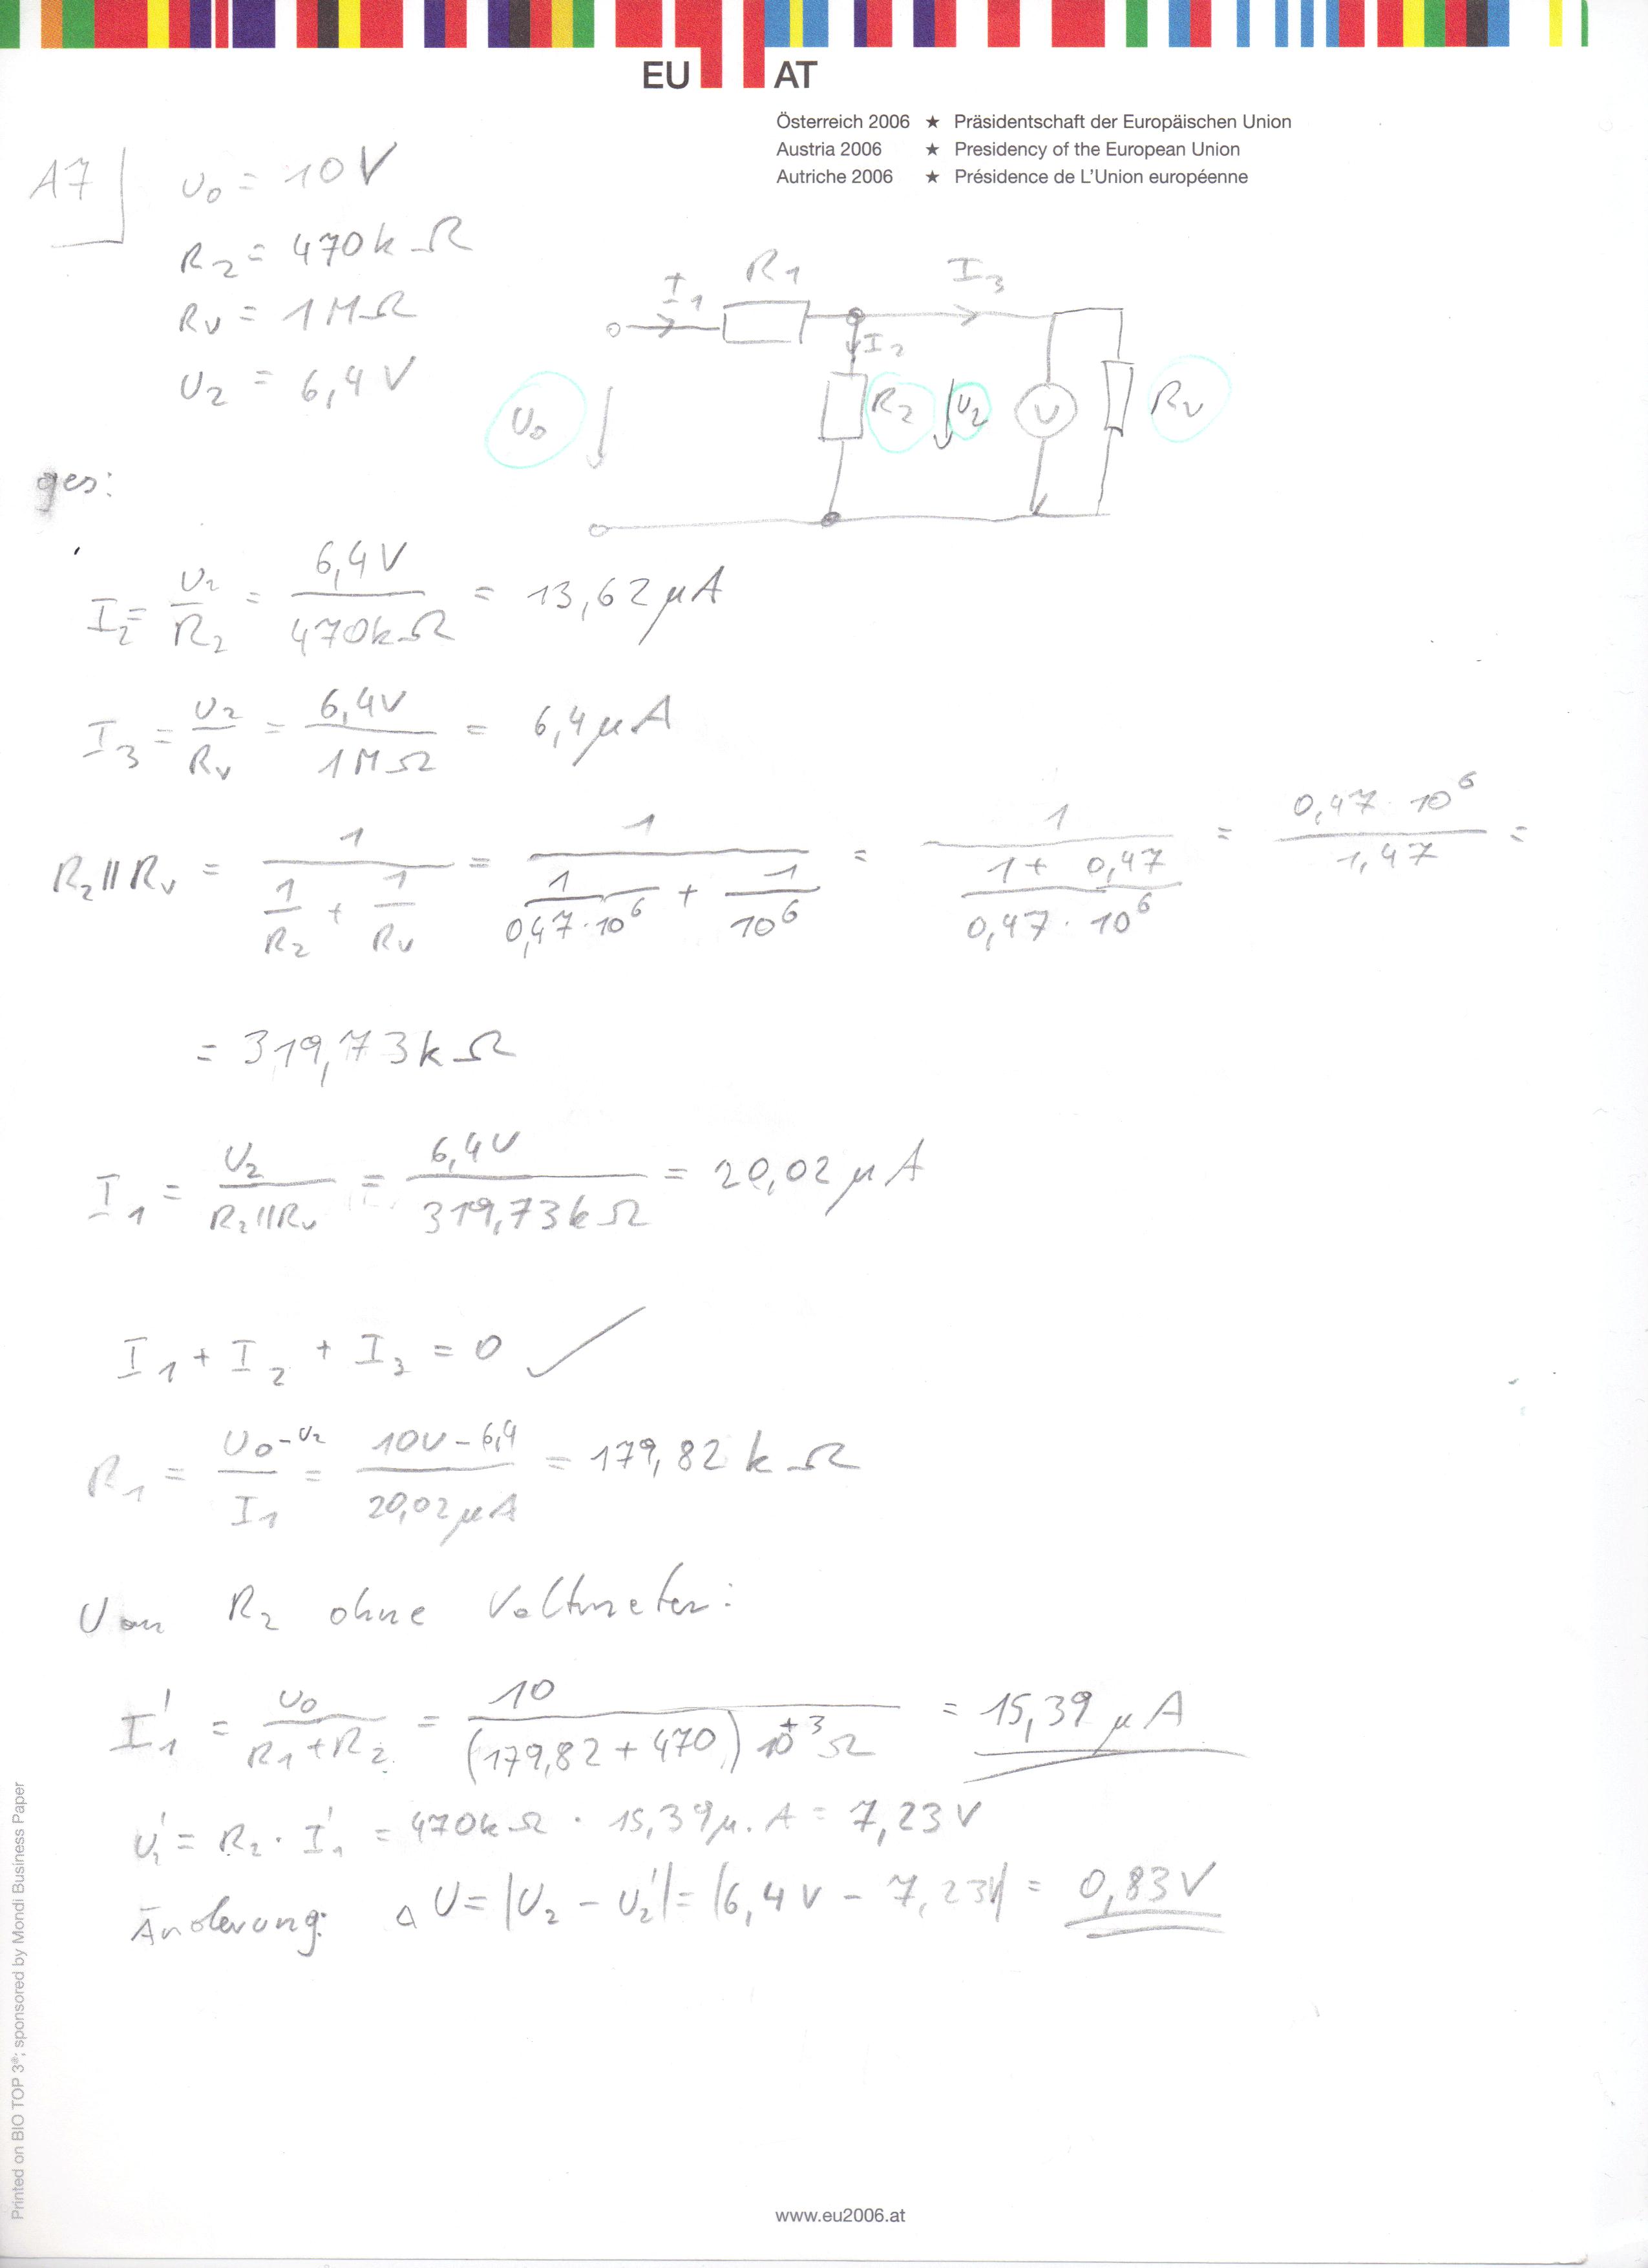 EU AT
Österreich 2006 ★ Präsidentschaft der Europäischen Union
Austria 2006 ★ Presidency of the European Union
Autriche 2006 ★ Présidence de L'Union européenne
A7
U₀ = 10V
R₂ = 470kΩ
Rᵥ = 1MΩ
U₂ = 6,4V
I₁ R₁ I₃
I₂
U₀ R₂ U₂ V Rᵥ
ges:
I₂ = U₂/R₂ = 6,4V/470kΩ = 13,62μA
I₃ = U₂/Rᵥ = 6,4V/1MΩ = 6,4μA
R₂||Rᵥ = 1/(1/R₂ + 1/Rᵥ) = 1/(1/(0,47·10⁶) + 1/10⁶) = 1/((1 + 0,47)/(0,47·10⁶)) = 0,47·10⁶/1,47 =
= 319,73kΩ
I₁ = U₂/(R₂||Rᵥ) = 6,4V/319,73kΩ = 20,02μA
I₁ + I₂ + I₃ = 0 ✓
R₁ = (U₀-U₂)/I₁ = (10V - 6,4)/20,02μA = 179,82kΩ
U an R₂ ohne Voltmeter:
I₁' = U₀/(R₁+R₂) = 10/((179,82+470)10⁺³Ω) = 15,39μA
U₂' = R₂ · I₁' = 470kΩ · 15,39μ.A = 7,23V
Änderung: ΔU = |U₂ - U₂'| = |6,4V - 7,23V| = 0,83V
Printed on BIO TOP 3®; sponsored by Mondi Business Paper
www.eu2006.at